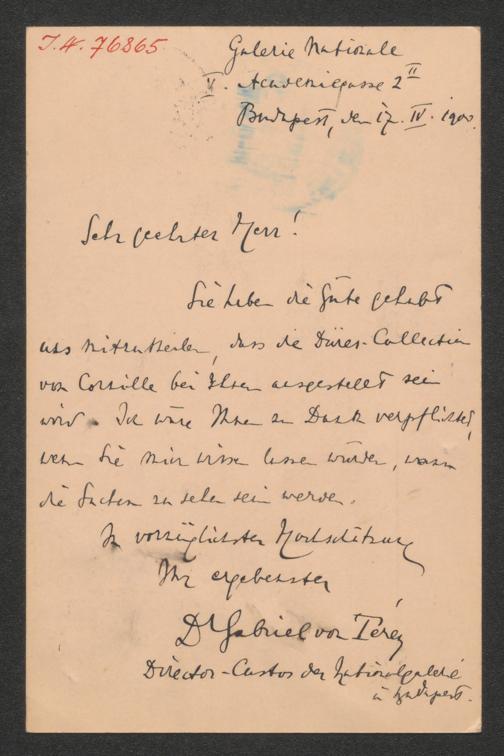 I.N. 76865
Galerie Nationale
V. Academiegasse 2 II
Budapest, den 17. IV. 1900.
Sehr geehrter Herr!
Sie haben die Güte gehabt
uns mitzutheilen, dass die Dürer-Collection
von Cornille bei Ihnen ausgestellt sein
wird. Ich wäre Ihnen zu Dank verpflichtet,
wenn Sie mir wissen lassen würden, wann
die Sachen zu sehen sein werden.
In vorzüglichster Hochschätzung
Ihr ergebenster
Dr Gabriel von Térey
Director-Custos der Nationalgalerie
in Budapest.